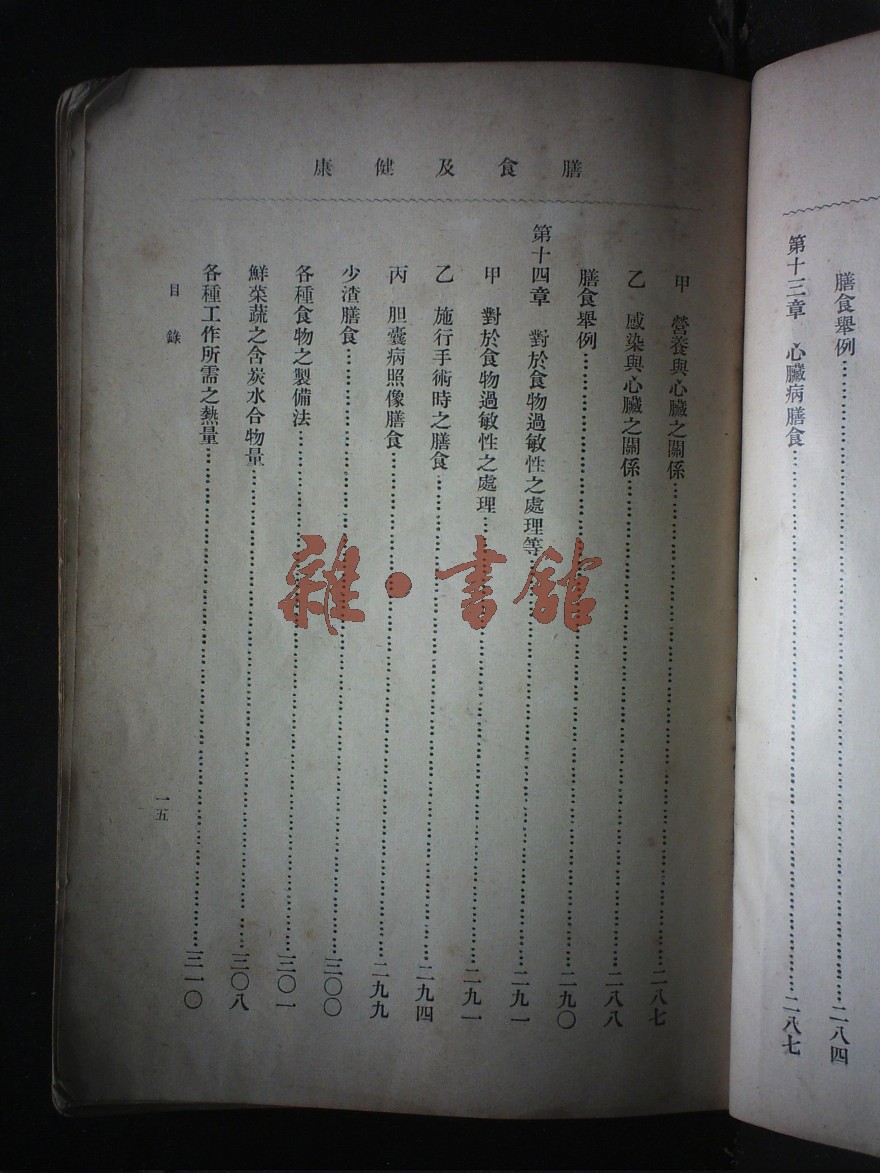 膳食舉例……二八四
第十三章　心臟病膳食……二八七
膳食及健康
甲　營養與心臟之關係……二八七
乙　感染與心臟之關係……二八八
膳食舉例……二九〇
第十四章　對於食物過敏性之處理等……二九一
甲　對於食物過敏性之處理……二九一
乙　施行手術時之膳食……二九四
丙　胆囊病照像膳食……二九九
少渣膳食……三〇〇
各種食物之製備法……三〇一
鮮菜蔬之含炭水合物量……三〇八
各種工作所需之熱量……三一〇
目錄
一五
雜·書館